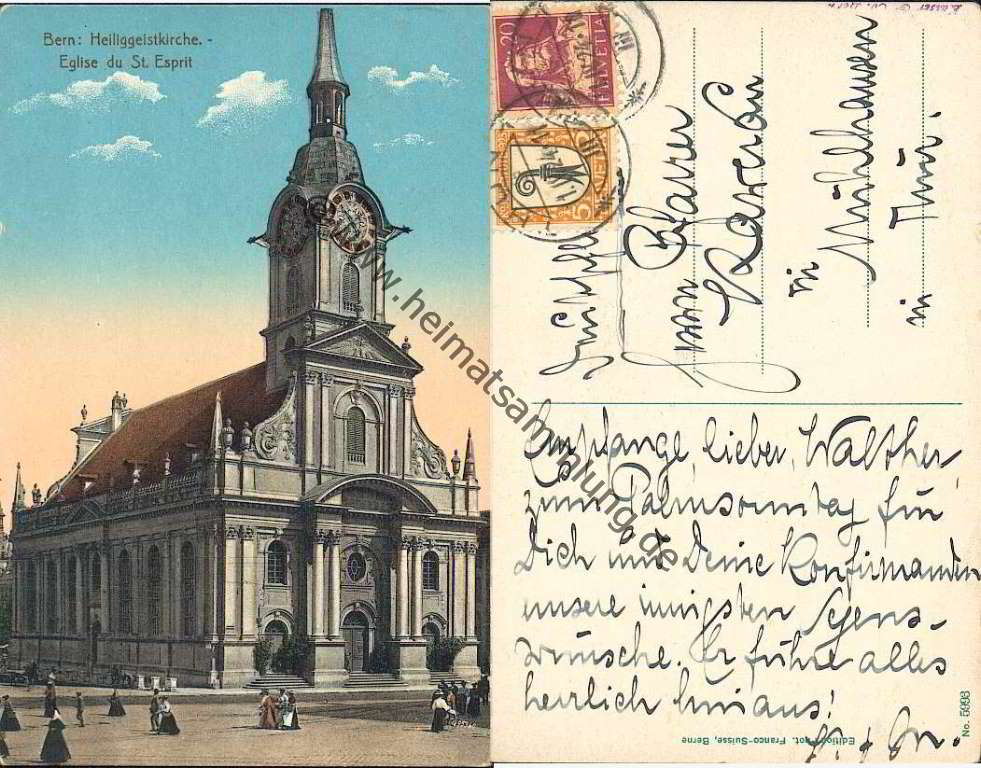 Bern: Heiliggeistkirche. -
Eglise du St. Esprit
www.heimatsammlung.de
20
HELVETIA
5
Pfarrer
in Mühlhausen
in Thür.
Empfange, lieber, Walther,
zum Palmsonntag für
Dich und Deine Konfirmanden
unsere innigsten Segens-
wünsche. Er führe alles
herrlich hinaus!
Edition Phot. Franco-Suisse, Berne
No. 5993